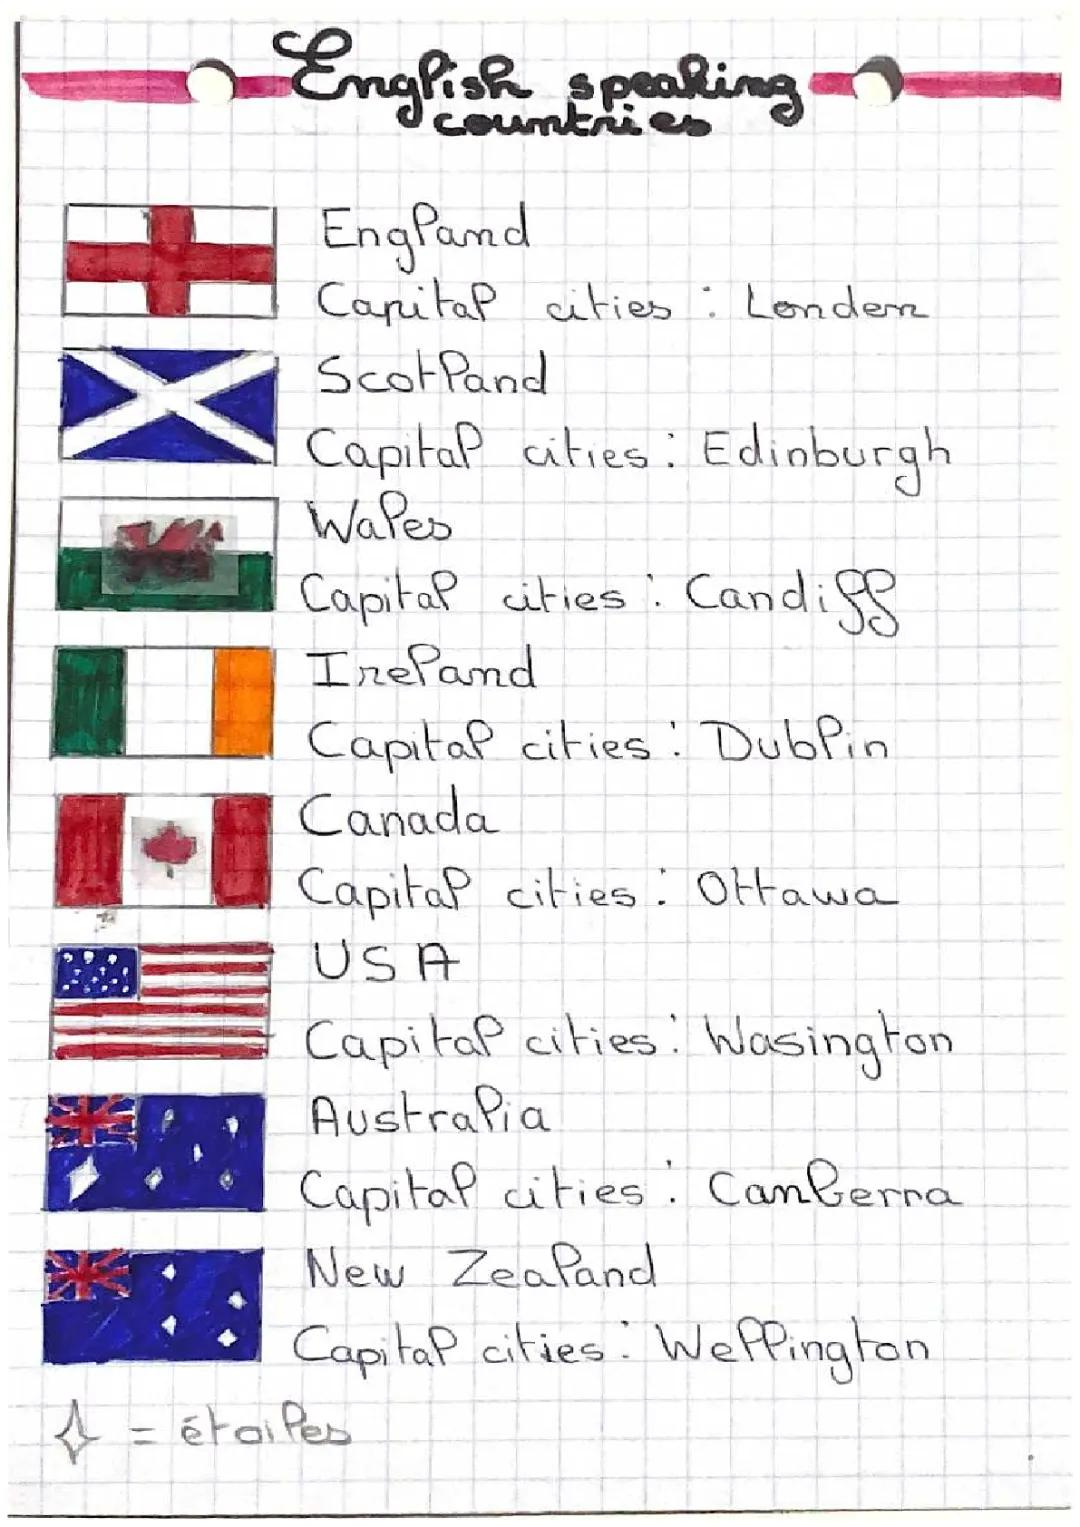 English speaking
countries
England
Capital cities : London
Scotland
Capital cities : Edinburgh
Wales
Capital cities : Cardiff
Ireland
Capital cities : Dublin
Canada
Capital cities : Ottawa
USA
Capital cities : Wasington
Australia
Capital cities : Canberra
New Zealand
Capital cities : Wellington
= étoiles